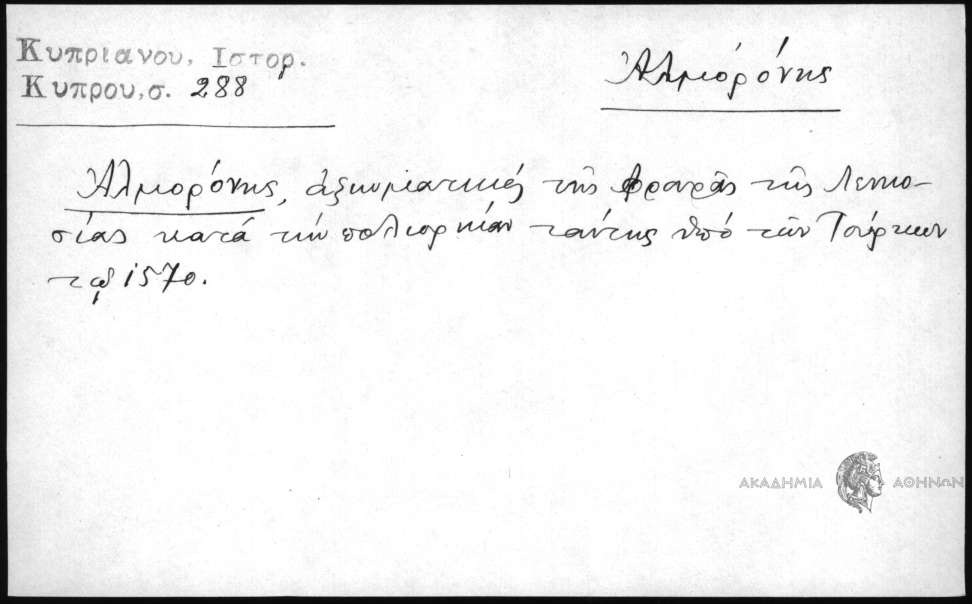 Κυπριανου, Ιστορ.
Κυπρου, σ. 288
Ἀλμορόνης
Ἀλμορόνης, ἀξιωματικός τῆς φρουρᾶς τῆς Λευκω-
σίας κατά τήν πολιορκίαν ταύτης ὑπό τῶν Τούρκων
τῷ 1570.
ΑΚΑΔΗΜΙΑ ΑΘΗΝΩΝ